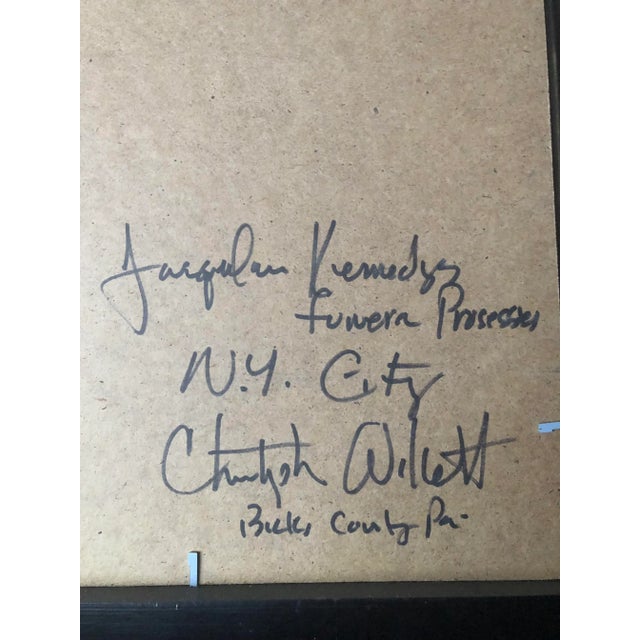 Jacqulen Kennedys
Funera Prosesses
N.Y. City
Christoph Willett
Bucks County Pa.